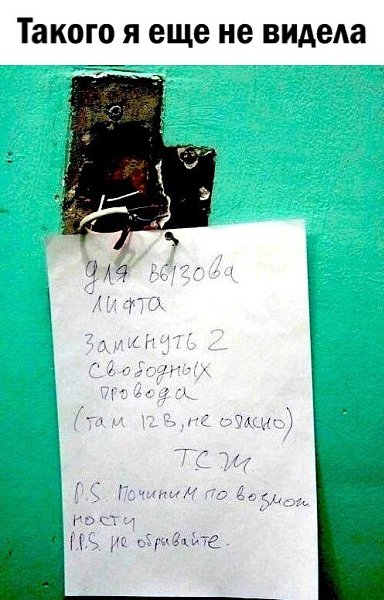 Такого я еще не видела
Для вызова
лифта
Замкнуть 2
свободных
провода
(там 12 В, не опасно)
ТСЖ.
P.S. Починим по возмож-
ности
P.P.S. не обрывайте.